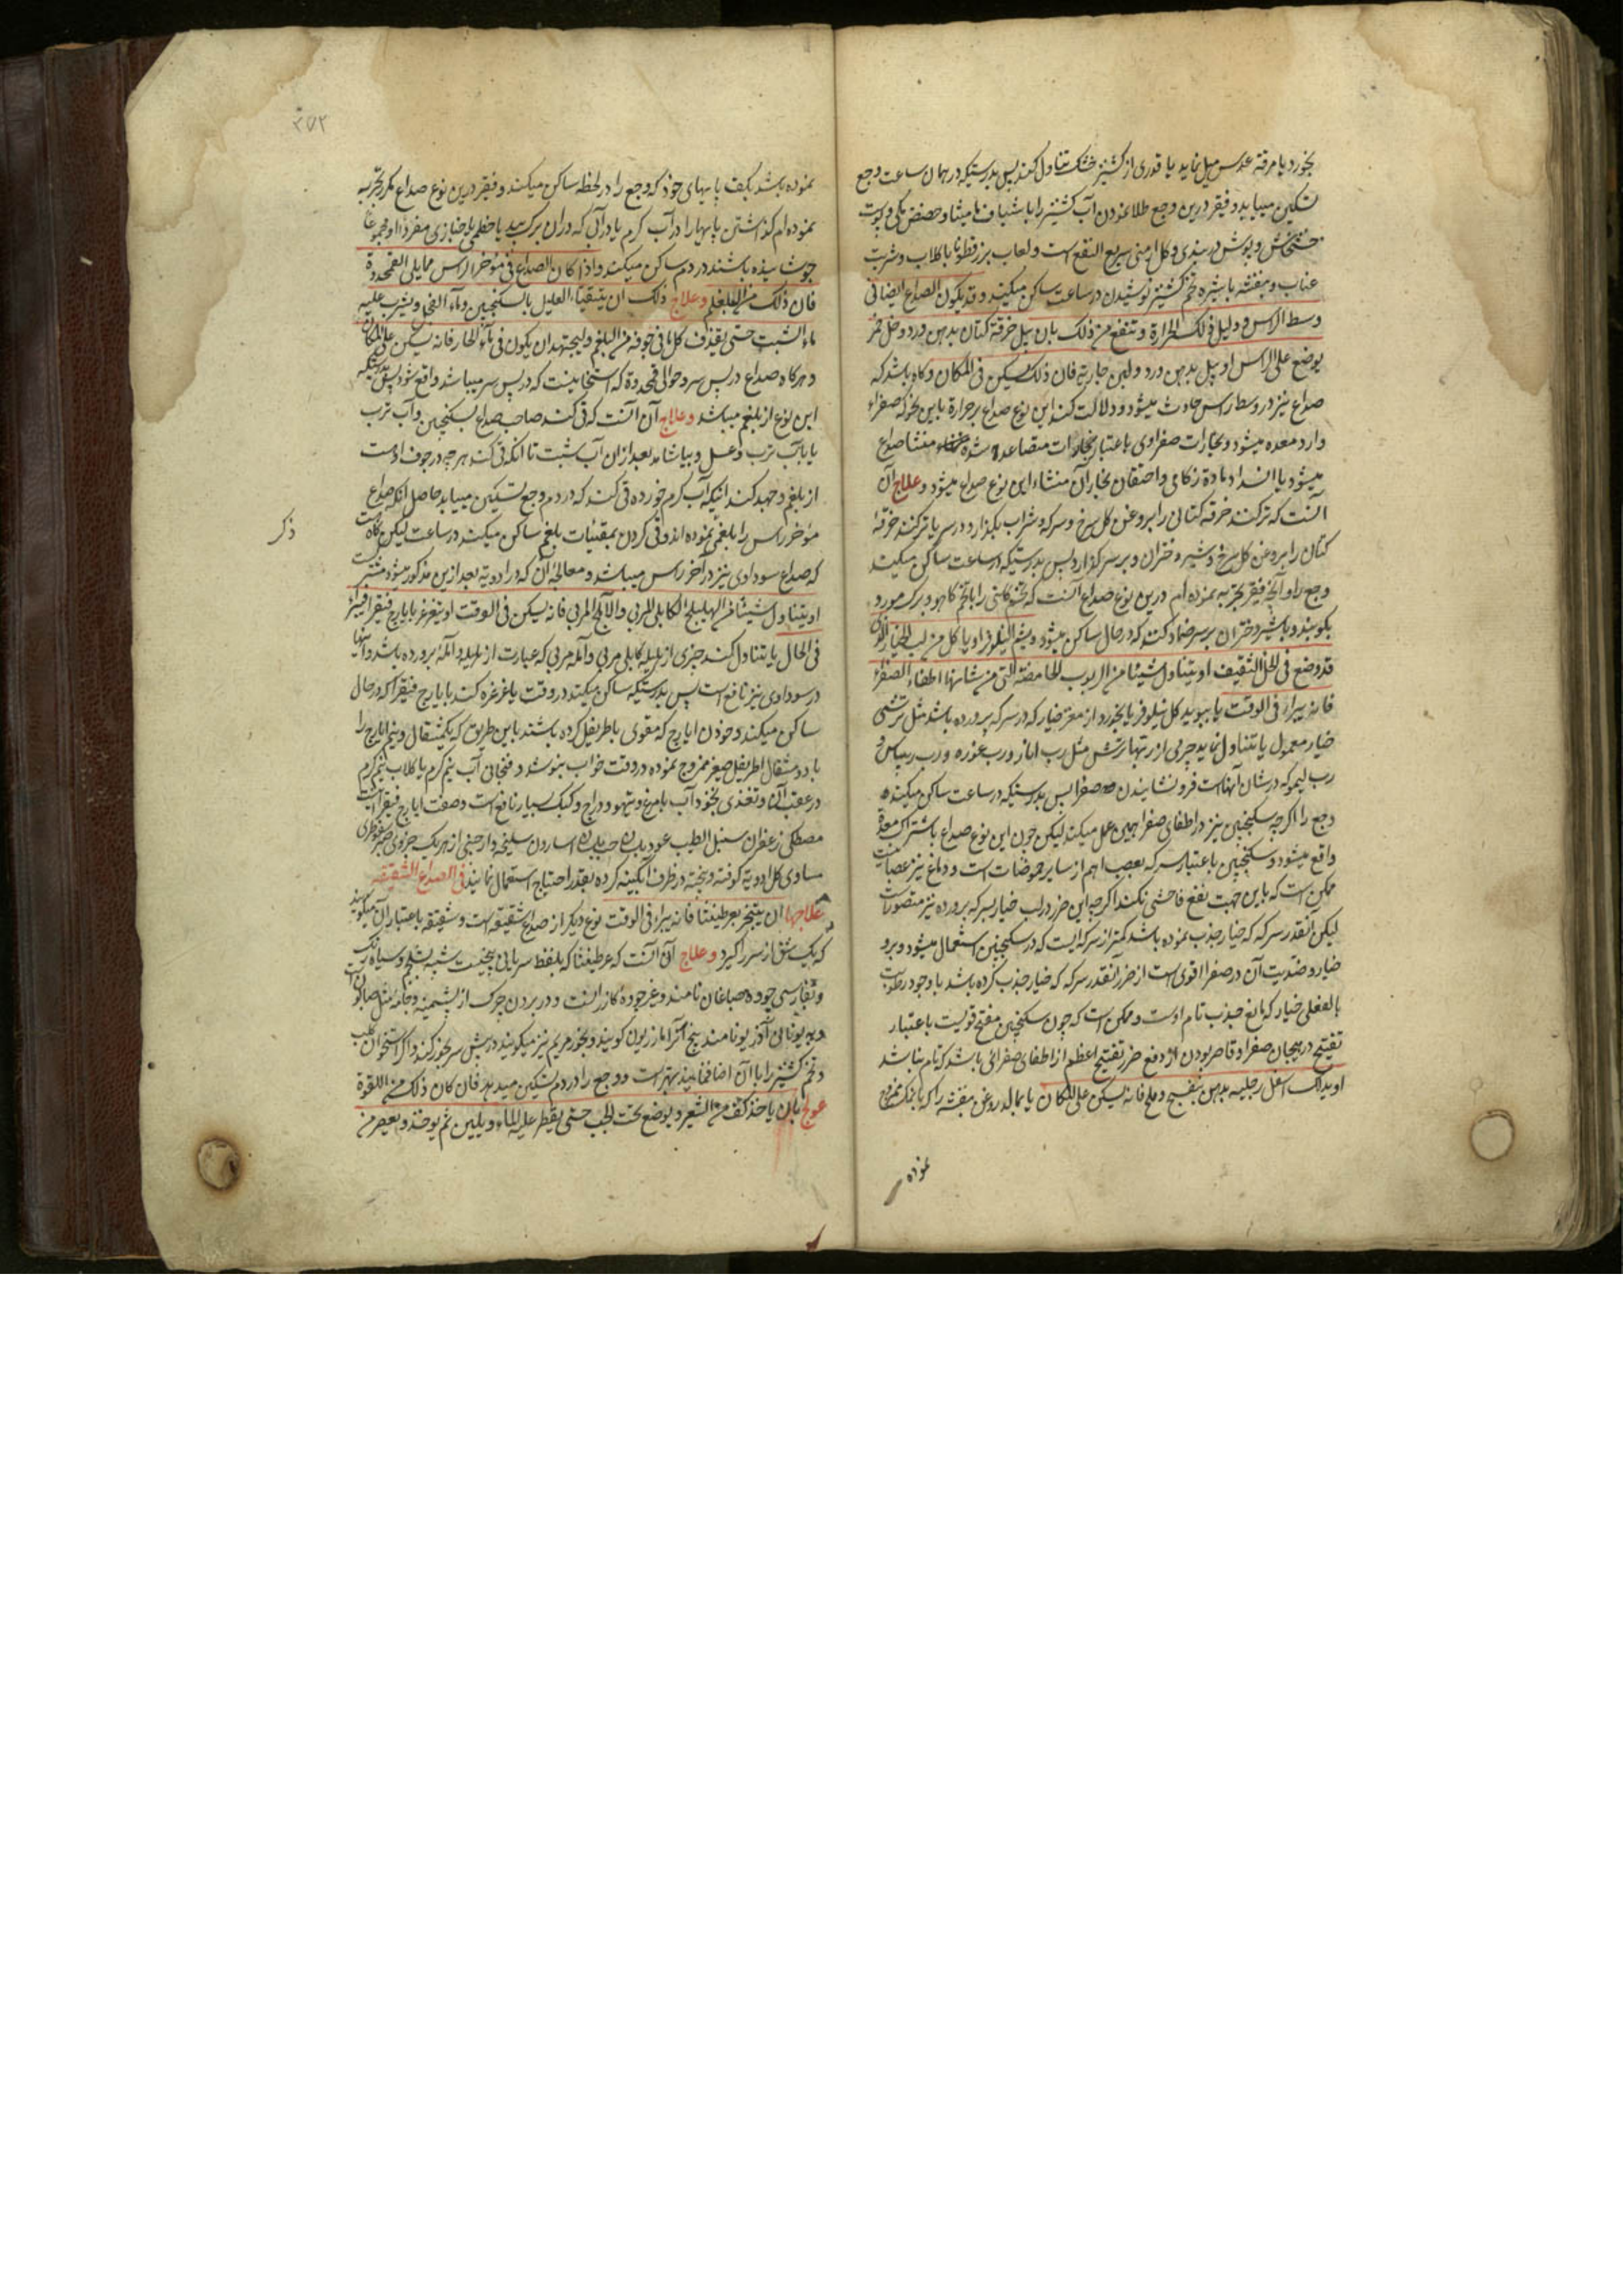 بخورد یا مرقه عدس میل نماید یا قدری از کشنیز خشک تناول کند پس بدرستیکه در همان ساعت وجع
تسکین مییابد و فقیر درین وجع طلا نمودن آب کشنیز را با شیاف مامیثا و حضض مکی و پوست
خشخاش و پوش دربندی و کل ارمنی سریع النفع است و لعاب بزرقطونا با کلاب و شربت
عناب و بنفشه با شیره تخم کشنیز نوشیدن در ساعت ساکن میکند و قد یکون الصداع ایضا فی
وسط الراس و دلیل ذلک الحرارة و تنفع من ذلک بان یبل خرقة کتان بدهن ورد و خل خمر
یوضع علی الراس او یبل بدهن ورد و لبن جاریة فان ذلک یسکن فی المکان و کاه باشد که
صداع نیز در وسط راس حادث میشود و دلالت کند این نوع صداع بر حرارة باین نحو که صفراء
وارد معده میشود و بخارات صفراوی باعتبار بخارات متصاعد شده منشا صداع
میشود یا انسداد ماده زکامی و احتقان بخار آن منشاء این نوع صداع میشود و علاج آن
آنست که تر کنند خرقه کتانی را بروغن کل سرخ و سرکه و شراب بکذارد در سر یا تر کنند خرقهٔ
کتان را بروغن کل سرخ و شیر دختران و بر سر کذارد پس بدرستیکه در ساعت ساکن میکند
وجع را و آنچه فقیر تجربه نموده ام درین نوع صداع آنست که تخم کاسنی را با تخم کاهو و برک مورد
بکوبند و با شیر دختران بر سر ضماد کنند که در حال ساکن میشود و یشم النیلوفر او یاکل من لب الخیار الذی
قد وضع فی الخل الثقیف او یتناول شیئا من الربوب الحامضة التی من شانها اطفاء الصفراء
فانه یبرا فی الوقت یا ببوید کل نیلوفر یا بخورد از مغز خیار که در سرکه پرورده باشد مثل ترشی
خیار معمول یا تناول نماید چیزی از ربهای ترش مثل رب انار و رب غوره و رب ریباس و
رب لیمو که در شان آنهاست فرو نشانیدن صفرا پس بدرستیکه در ساعت ساکن میکند
وجع را اکرچه سکنجبین نیز در اطفای صفرا همین عمل میکند لیکن چون این نوع صداع باشتراک معده
واقع میشود و سکنجبین باعتبار سرکه بعصب اهم از سایر حموضات است و دماغ نیز عصبانیت
ممکن است که باین جهت نفع فاحشی نکند اکرچه این ضرر در لب خیار بسرکه پرورده نیز متصور است
لیکن آنقدر سرکه که خیار جذب نموده باشد کمتر از سرکه ایست که در سکنجبین استعمال میشود و برو
خیار و ضدیت آن در صفرا اقوی است از ضرر آنقدر سرکه که خیار جذب کرده باشد با وجود رطوبت
بالفعلی خیار که مانع جذب تام اوست و ممکن است که چون سکنجبین مفتح قویست باعتبار
تفتیح در هیجان صفرا و قاصر بودن از دفع ضرر تفتیح اعظم از اطفای صفرائی باشد که تام نباشد
او یدلک اسفل رجلیه بدهن بنفسج و ملح فانه یسکن علی المکان یا بمالد روغن بنفشه را که با نمک ممزوج
نموده
۳۵۲
نموده باشد بکف پایهای خود که وجع را در لحظه ساکن میکند و فقیر درین نوع صداع مکرر تجربه
نموده ام کذاشتن پایها را در آب کرم یا در آبی که در آن برک بید یا خطمی یا خبازی مفردا او مجموعا
جوشانیده باشند در دم ساکن میکند و اذا کان الصداع فی مؤخر الراس مما یلی القمحدوة
فان ذلک من البلغم و علاج ذلک ان یتقیاء العلیل بالسکنجبین و ماء الفجل و یشرب علیه
ماء الشبت حتی یقذف کل ما فی جوفه من البلغم و لیجتهد ان یکون فی ماء الحار فانه یسکن علی المکان
و هرکاه صداع در پس سر و حوالی قمحدوة که استخوانیست که در پس سر میباشد واقع شود پس بدرستیکه
این نوع از بلغم میباشد و علاج آن آنست که قی کند صاحب صداع بسکنجبین و آب ترب
یا بآب ترب و عسل و بیاشامد بعد از ان آب شبت تا انکه قی کند هرچه در جوف اوست
از بلغم و جهد کند انیکه آب کرم خورده قی کند که در دم وجع تسکین مییابد حاصل انکه صداع
مؤخر راس را بلغمی نموده اند و قی کردن بمقیئات بلغم ساکن میکند در ساعت لیکن کاه است
ذکر
که صداع سوداوی نیز در آخر راس میباشد و معالجهٔ آن که در ادویه بعد ازین مذکور میشود مشترکست
او یتناول شیئا من الهلیلج الکابلی المربی و الآملج المربی فانه یسکن فی الوقت او یتغرغر بایارج فیقرا فیبرأ
فی الحال یا تناول کند چیزی از هلیلهٔ کابلی مربی و آمله مربی که عبارت از هلیله و آمله پرورده باشد و اینها
در سوداوی نیز نافع است پس بدرستیکه ساکن میکند در وقت یا غرغره کند بایارج فیقرا که در حال
ساکن میکند و خوردن ایارج که مقوی باطریفل کرده باشند باین طریق که یکمثقال و نیم ایارج را
با دو مثقال اطریفل صغیر ممزوج نموده در وقت خواب بنوشد و فنجانی آب نیم کرم یا کلاب نیم کرم
در عقب آن و تغذی بنخود آب با مرغ و تیهو و دراج و کبک بسیار نافع است و صفت ایارج فیقرا اینست
مصطکی زعفران سنبل الطیب عود بلسان حب بلسان اسارون سلیخه دارچینی از هریک جزوی صبر سقوطری
مساوی کل ادویه کوفته و بیخته در ظرف آبکینه کرده بقدر احتیاج استعمال نمایند فی الصداع الشقیقه
علاجها ان یتبخر بعرطنیثا فانه یبراء فی الوقت نوع دیکر از صداع شقیقه است و شقیقه باعتبار آن میکویند
که یک شق از سر را کیرد و علاج آن آنست که عرطنیثا که بلفظ سریانی بیخیست شبیه بشلجم و سیاه رنک
و بفارسی چوده صباغان نامند و غیر چوبهٔ کازرانست و در بردن چرک از پشمینه و جامه مثل صابون است
و بیونانی آذریونا نامند بیخ آنرا مازریون کویند و بخور مریم نیز میکویند در پیش سر بخور کند و اکر استخوان کلب
و تخم کشنیز را با آن اضافه نمایند بهتر است و وجع را در دم تسکین میدهد فان کان ذلک من اللقوة
عولج بان یاخذ کف من الشعیر و یوضع تحت الحب حتی یقطر علیه الماء و یلین ثم یوخذ و یعصر من